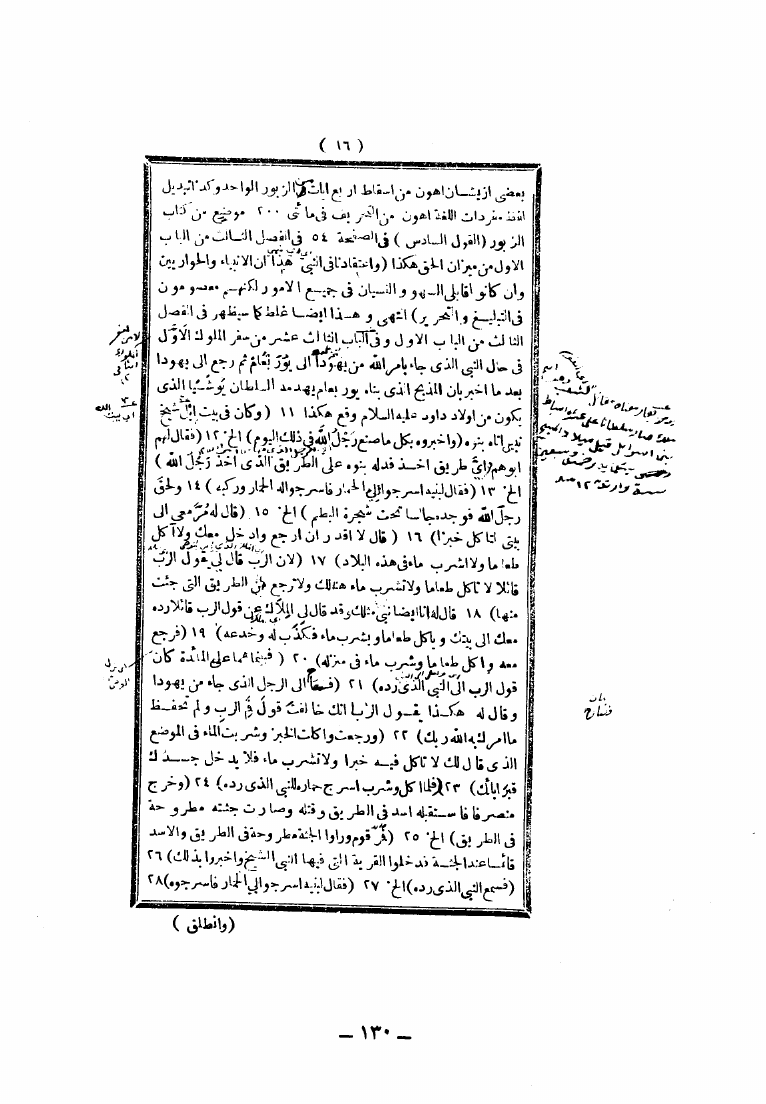 ( ١٦ )
بعضى ازيشان اهون من اسقاط اربع ايات من الزبور الواحد وكذا تبديل
مفردات اللغة اهون من التحريف فى مائتى ٢٠٠ موضع من كتاب
الزبور (القول السادس) فى الصفحة ٥٤ فى الفصل الثالث من الباب
الاول من ميزان الحق هكذا (واعتقادنا فى النبى هذا ان الانبياء والحواريين
وان كانوا قابلى السهو والنسيان فى جميع الامور لكنهم معصومون
فى التبليغ والتحرير) انتهى وهذا ايضا غلط كما سيظهر فى الفصل
الثالث من الباب الاول وفى الباب الثالث عشر من سفر الملوك الاول
فى حال النبى الذى جاء بامر الله من يهودا الى يوربعام ثم رجع الى يهودا
بعد ما اخبر بان المذبح الذى بناه يوربعام يهدمه السلطان يوشيا الذى
يكون من اولاد داود عليه السلام وقع هكذا ١١ (وكان فى بيت ايل شيخ
نبى اتاه بنوه (واخبروه بكل ما صنع رجل الله فى ذلك اليوم) الخ ١٢ (فقال لهم
ابوهم اى طريق اخذ فدله بنوه على الطريق الذى اخذ رجل الله )
الخ ١٣ (فقال لبنيه اسرجوا لى الحمار فاسرجوا له الحمار وركبه ) ١٤ ولحق
رجل الله فوجده جالسا تحت شجرة البطم ) الخ ١٥ (قال له مر معى الى
بيتى لتاكل خبزا) ١٦ ( قال لا اقدر ان ارجع وادخل معك ولا آكل
طعاما ولا اشرب ماء فى هذه البلاد) ١٧ (لان الرب قال لى بقول الرب
قائلا لا تاكل طعاما ولا تشرب ماء هنالك ولا ترجع فى الطريق التى جئت
منها) ١٨ قال له انا ايضا نبى مثلك وقد قال لى الملاك عن قول الرب قائلا رده
معك الى بيتك وياكل طعاما ويشرب ماء فكذب له وخدعه) ١٩ (فرجع
معه واكل طعاما وشرب ماء فى منزله) ٢٠ ( فبينما هما على المائدة كان
قول الرب الى النبى الذى رده) ٢١ الى الرجل الذى جاء من يهودا
وقال له هكذا يقول الرب انك خالفت قول فم الرب ولم تحفظ
ما امرك به الله ربك) ٢٢ (ورجعت واكلت الخبز وشربت الماء فى الموضع
الذى قال لك لا تاكل فيه خبزا ولا تشرب ماء فلا يدخل جسدك
قبر ابائك) ٢٣ (فلما اكل وشرب اسرج حماره للنبى الذى رده) ٢٤ (وخرج
منصرفا فاستقبله اسد فى الطريق وقتله وصارت جثته مطروحة
فى الطريق) الخ ٢٥ (فمر قوم وراوا الجثة مطروحة فى الطريق والاسد
قائما عند الجثة فدخلوا القرية التى فيها النبى الشيخ واخبروا بذلك) ٢٦
(فسمع النبى الذى رده) الخ ٢٧ (فقال لبنيه اسرجوا لى الحمار فاسرجوه) ٢٨
(وانطلق )
– ١٣٠ –